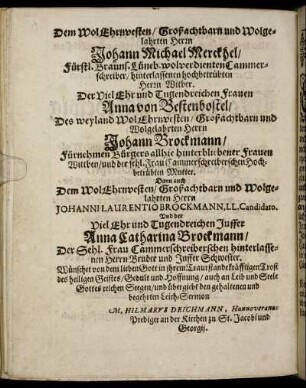 Dem WolEhrnvesten / Großachtbarn und Wolge-
lahrten Herrn
Johann Michael Merckhel /
Fürstl. Braunſ. Lüneb. wolverdienten Cammer-
ſchreiber / hinterlaſſenen hochbetrübten
Herrn Witber.
Der Viel Ehr und Tugendreichen Frauen
Anna von Beſtenboſtel /
Des weyland WolEhrnveſten / Großachtbarn und
Wolgelahrten Herrn
Johann Brockmann /
Fürnehmen Bürgers allhie hinterbliebener Frauen
Wittben / und der ſehl. Frau Cammerſchreiberſchen Hoch-
betrübten Mutter.
Wie auch
Dem WolEhrnveſten / Großachtbarn und Wolge-
lahrten Herrn
JOHANNI LAURENTIO BROCKMANN, LL. Candidato.
Und der
Viel Ehr und Tugendreichen Juffer
Anna Catharina Brockmann /
Der Sehl. Frau Cammerſchreiberſchen hinterlaſſe-
nen Herrn Bruder und Juffer Schweſter.
Wünſchet von dem lieben Gott in ihrem Traurſtande kräfftigen Troſt
des heiligen Geiſtes / Gedult und Hoffnung / auch an Leib und Seele
Gottes reichen Segen / und übergiebt den gehaltenen und
begehrten Leich-Sermon
M. HILMARUS DEICHMANN, Hannoveranus
Prediger an der Kirchen zu St. Jacobi und
Georgij.